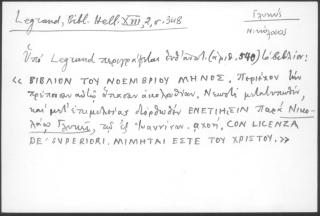 Legrand, Bibl. Hell. XIII, 2, σ. 348
Γλυκύς
Νικόλαος
Ὑπὸ Legrand περιγράφεται ὑπ' ἀριθ. (ἀριθ. 540) τὸ βιβλίον:
« ΒΙΒΛΙΟΝ ΤΟΥ ΝΟΕΜΒΡΙΟΥ ΜΗΝΟΣ, Περιέχον τὴν
πρέπουσαν αὐτῷ ἅπασαν ἀκολουθίαν. Νεωστὶ μετατυπωθέν,
καὶ μετ' ἐπιμελείας διορθωθὲν ΕΝΕΤΙΗΣΙΝ Παρὰ Νικο-
λάῳ Γλυκεῖ, τῷ ἐξ Ἰωαννίνων. αχοή, CON LICENZA
DE' SUPERIORI. ΜΙΜΗΤΑΙ ΕΣΤΕ ΤΟΥ ΧΡΙΣΤΟΥ. »